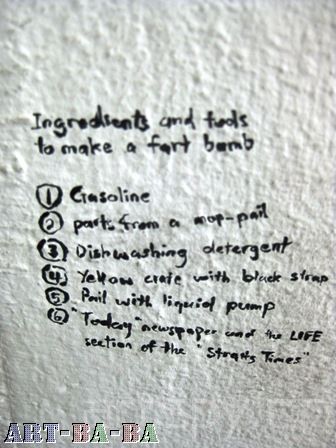 Ingredients and tools
to make a fart bomb
① Gasoline
② parts from a mop-pail
③ Dishwashing detergent
④ Yellow crate with black strap
⑤ Pail with liquid pump
⑥ "Today" newspaper and the LIFE
section of the "Straits Times"
ART-BA-BA